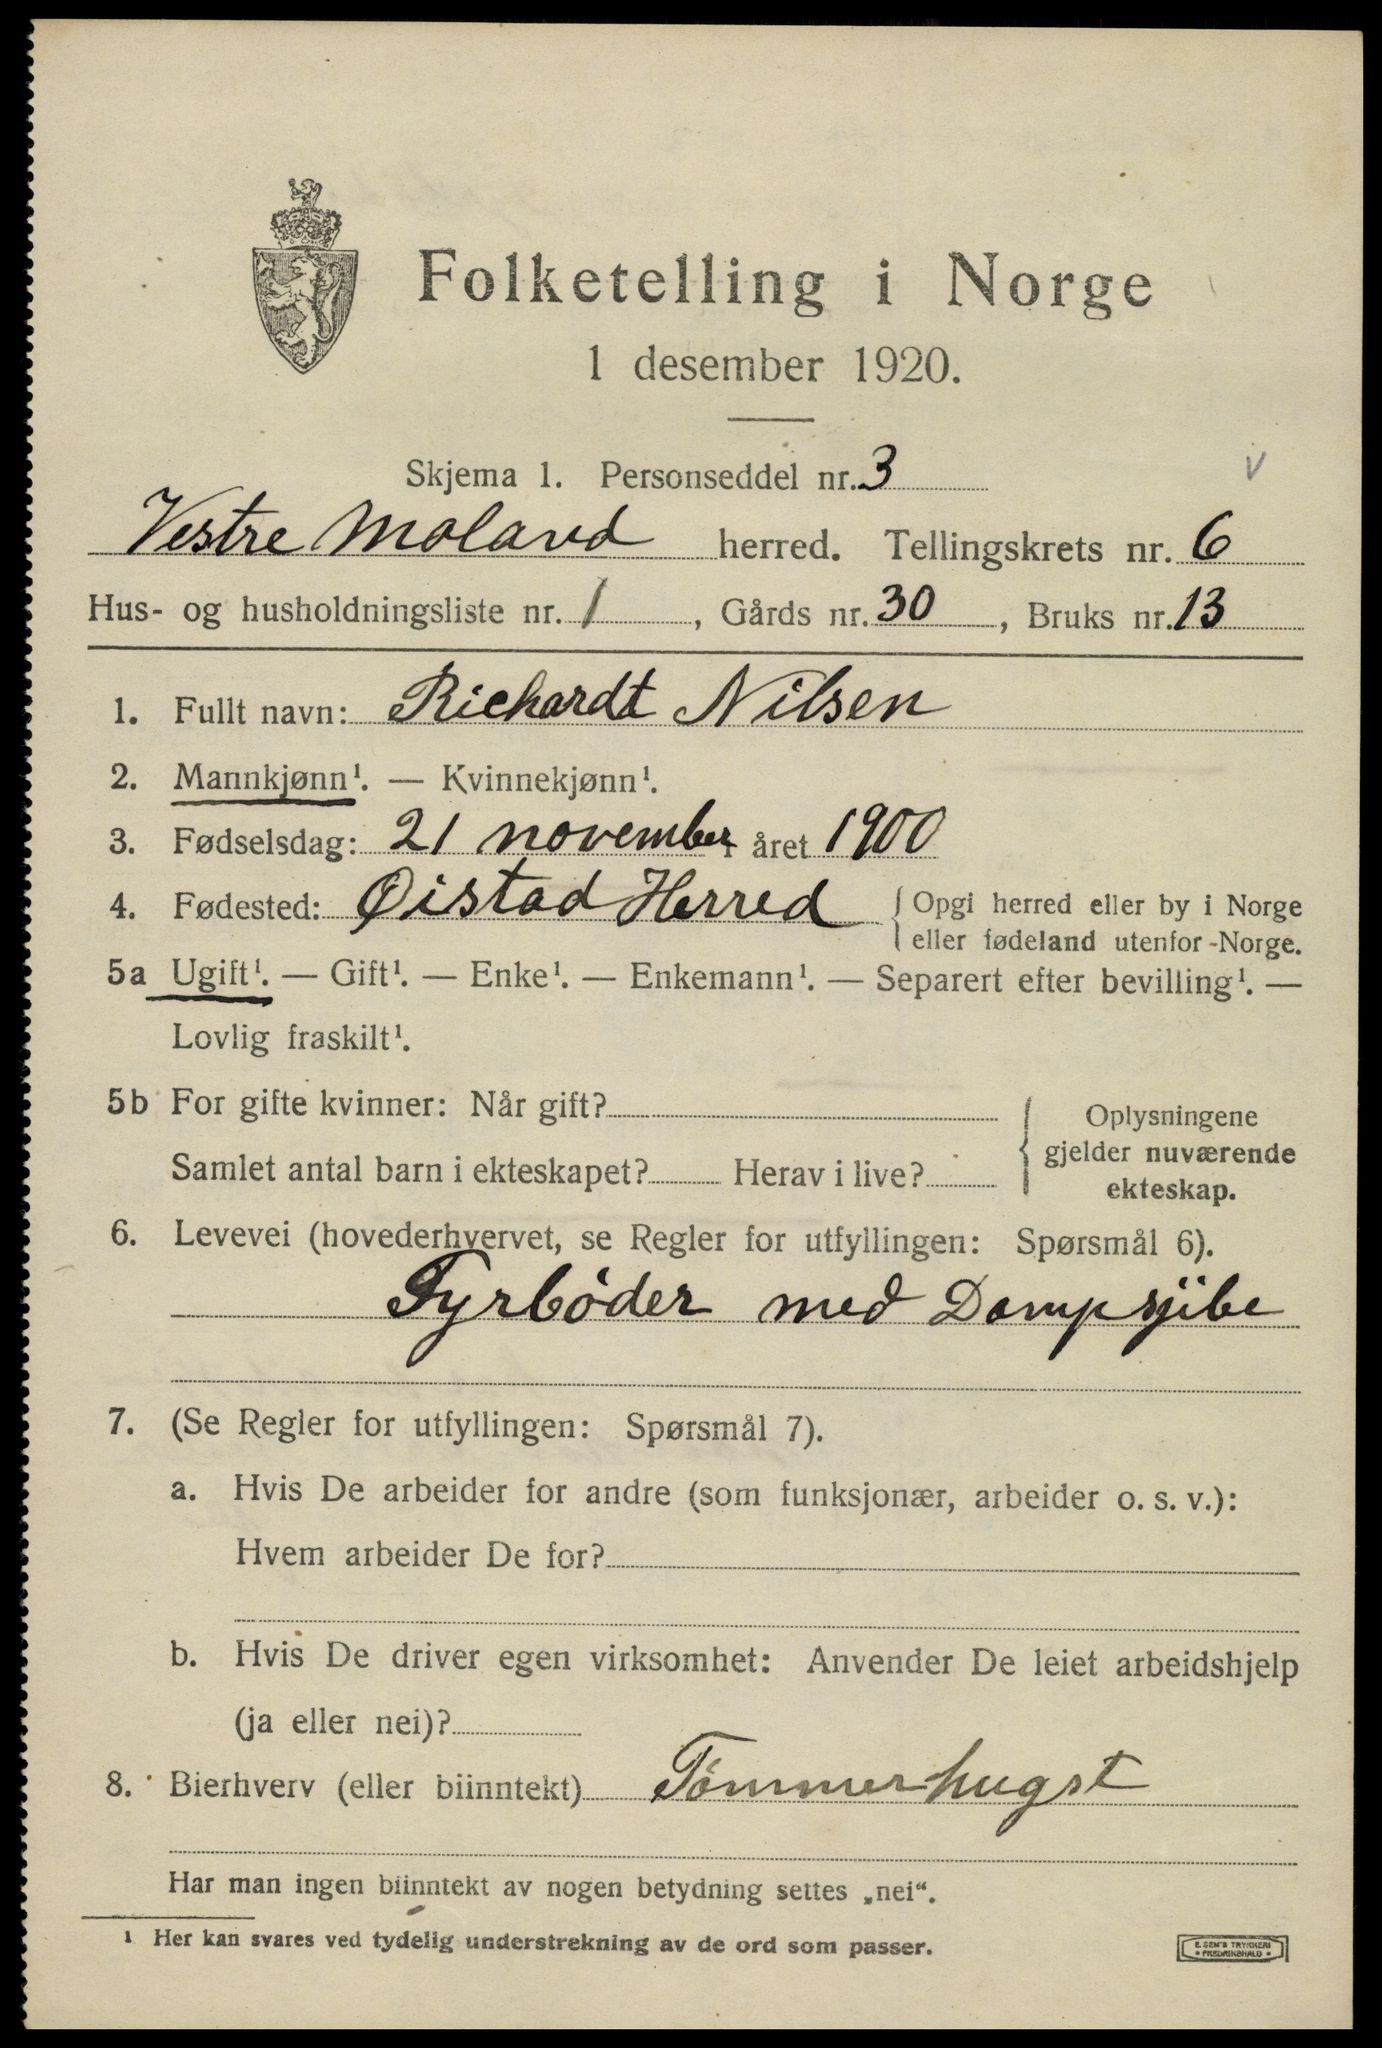 Folketelling i Norge
1 desember 1920.
Skjema 1. Personseddel nr. 3
Vestre Moland herred. Tellingskrets nr. 6
Hus- og husholdningsliste nr. 1, Gårds nr. 30, Bruks nr. 13
1. Fullt navn: Richardt Nilsen
2. Mannkjønn¹. — Kvinnekjønn¹.
3. Fødselsdag: 21 november året 1900
4. Fødested: Øistad Herred { Opgi herred eller by i Norge
eller fødeland utenfor Norge.
5a Ugift¹. — Gift¹. — Enke¹. — Enkemann¹. — Separert efter bevilling¹. —
Lovlig fraskilt¹.
5b For gifte kvinner: Når gift?
Samlet antal barn i ekteskapet? Herav i live?
{ Oplysningene
gjelder nuværende
ekteskap.
6. Levevei (hovederhvervet, se Regler for utfyllingen: Spørsmål 6).
Fyrbøder med Dampsjibe
7. (Se Regler for utfyllingen: Spørsmål 7).
a. Hvis De arbeider for andre (som funksjonær, arbeider o. s. v.):
Hvem arbeider De for?
b. Hvis De driver egen virksomhet: Anvender De leiet arbeidshjelp
(ja eller nei)?
8. Bierhverv (eller biinntekt) Tömmerhugst
Har man ingen biinntekt av nogen betydning settes „nei“.
¹ Her kan svares ved tydelig understrekning av de ord som passer.
E. SEM'S TRYKKERI
• FREDRIKSHALD •